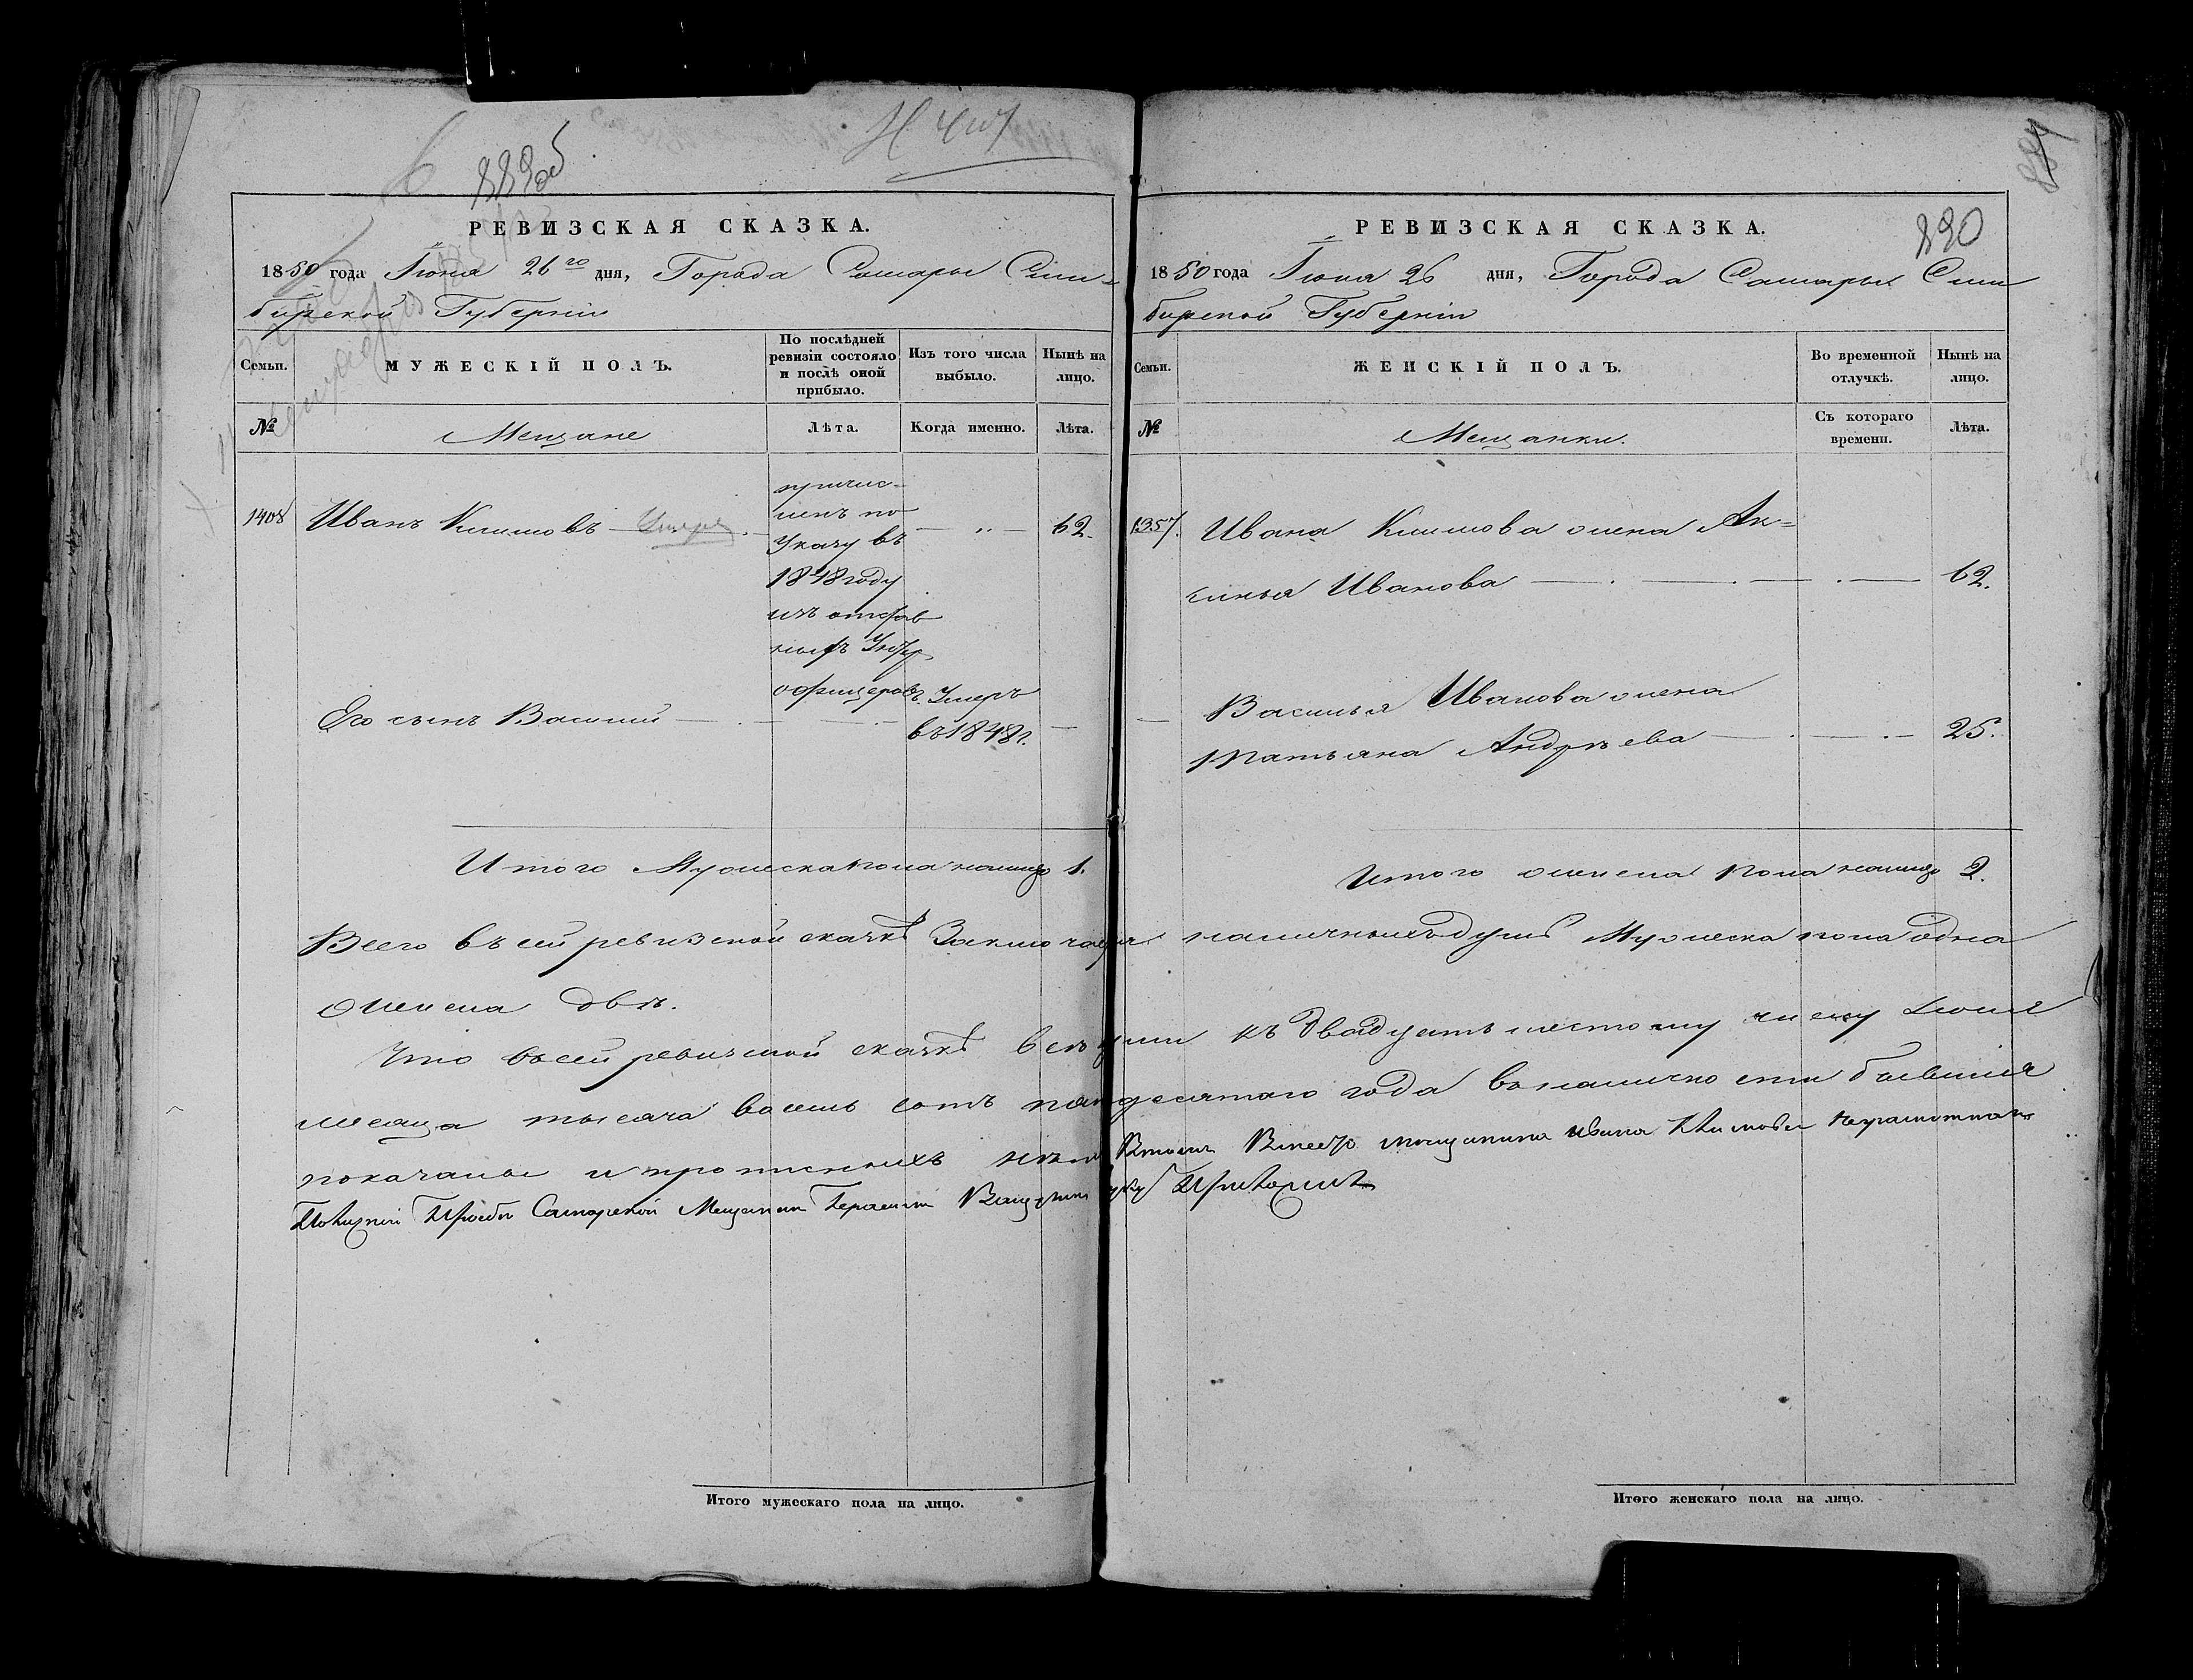 889об
РЕВИЗСКАЯ СКАЗКА.
1850 года Іюня 26го дня, Города Самары Сим-
бирской Губерніи
Семьи.
МУЖЕСКІЙ ПОЛЪ.
По послѣдней
ревизіи состояло
и послѣ оной
прибыло.
Изъ того числа
выбыло.
Нынѣ на
лицо.
№
Мещане
Лѣта.
Когда именно.
Лѣта.
1408 Иванъ Климовъ Умеръ
62.
причис-
ленъ по
Указу въ
1848 году
изъ отстав
ныхъ Унтер
офицеровъ.
Его сынъ Василий
Умеръ
въ 1848г.
Итого Мужеска пола налицо 1.
Итого мужескаго пола на лицо.
890
РЕВИЗСКАЯ СКАЗКА.
1850 года Іюня 26 дня, Города Самары Сим
бирской Губерніи
Семьи.
ЖЕНСКІЙ ПОЛЪ.
Во временной
отлучкѣ.
Нынѣ на
лицо.
№
Мещанки.
Съ котораго
времени.
Лѣта.
1357. Ивана Климова жена Ак-
синья Иванова 62.
Василья Иванова жена
Татьяна Андрѣева 25.
Итого женска пола налицо 2.
Всего въ сей ревизской сказкѣ Заключается наличныхъ душъ Мужеска пола одна
женска двѣ.
Что въ сей ревизской сказкѣ всѣ души къ двадцать шестому числу Іюня
месяца тысяча восемь сотъ пятдесятаго года въ наличности бывшия
показаны и прописныхъ нѣтъ Втомъ Вместо мещанина Ивана Климова неграмотнаго
Поличнай Прозбы Самарской Мещанин Герасим руку Приложилъ
Итого женскаго пола на лицо.